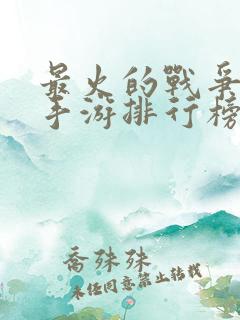 最火的戰爭
手游排行榜
喬殊殊
未经同意禁止转载